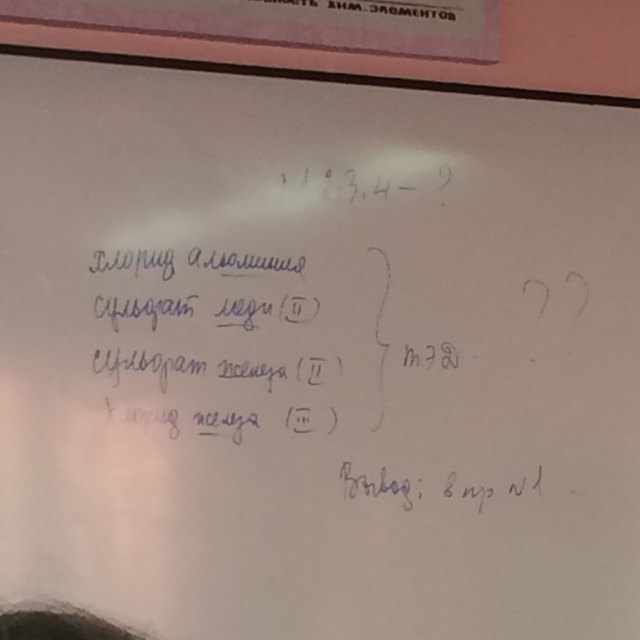 ХИМ. ЭЛЕМЕНТОВ
№ 1 2.3.4 - ?
хлорид алюминия
сульфат меди (II)
сульфат железа (II)
хлорид железа (III)
ТЭД
? ?
Вывод: в пр №1